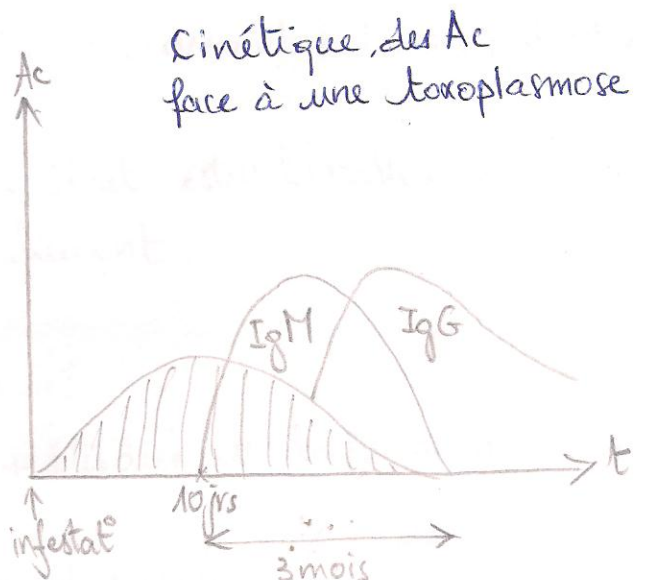 Cinétique des Ac
face à une toxoplasmose
Ac
IgM
IgG
t
10 jrs
infestat°
...
3 mois